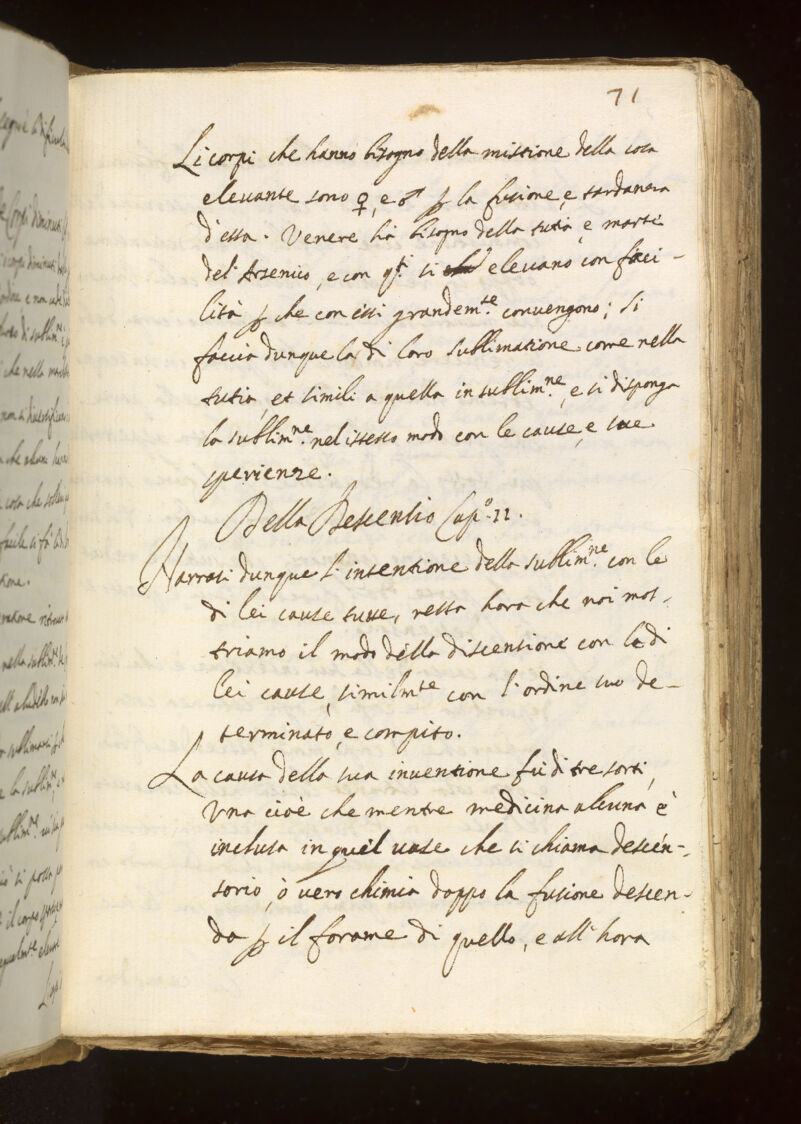 71
Li corpi che hanno bisogno della mistione della cosa
elevante sono ♀, e ♂ ꝑ la fusione, e tardanza
d'essa. Venere hà bisogno della tutia, e marte
del'Arsenico, e con qti si elevano con faci-
lità ꝑ che con essi grandemte convengono; si
faccia dunque la di loro sublimatione come nella
tutia, et simili a quella in sublimne, e si disponga
la sublimne nel istesso modo con le cause, e sue
sperienze.
Della Descensio Capo. 11.
Narrati dunque l'intentione della sublimne con le
di lei cause tutte, resta hora che noi mos-
triamo il modo della discensione con le di
lei cause, similmte con l'ordine suo de-
terminato, e compito.
La causa della sua inventione fù di tre sorti,
Una cioè che mentre medicina alcuna è
inclusa in quel vase che si chiama descén-
sorio, ò vero chimia doppo la fusione descen-
da ꝑ il forame di quello, e all'hora